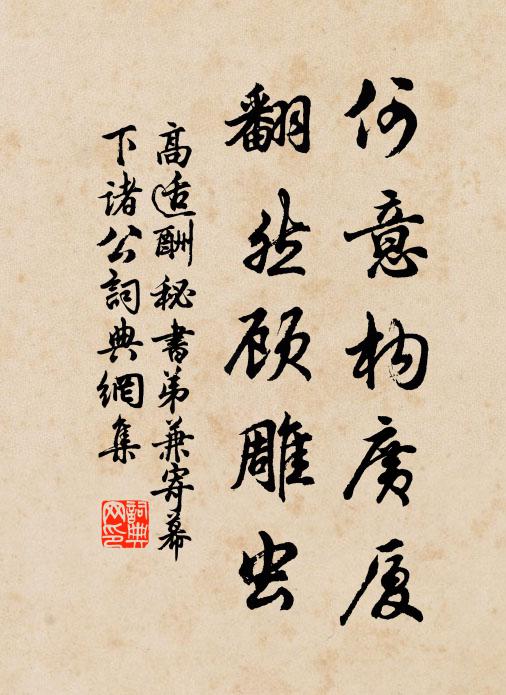 何意构廣厦
翻然顾雕虫
高适酬秘書弟兼寄幕
下诸公詞典網集
詞典网印